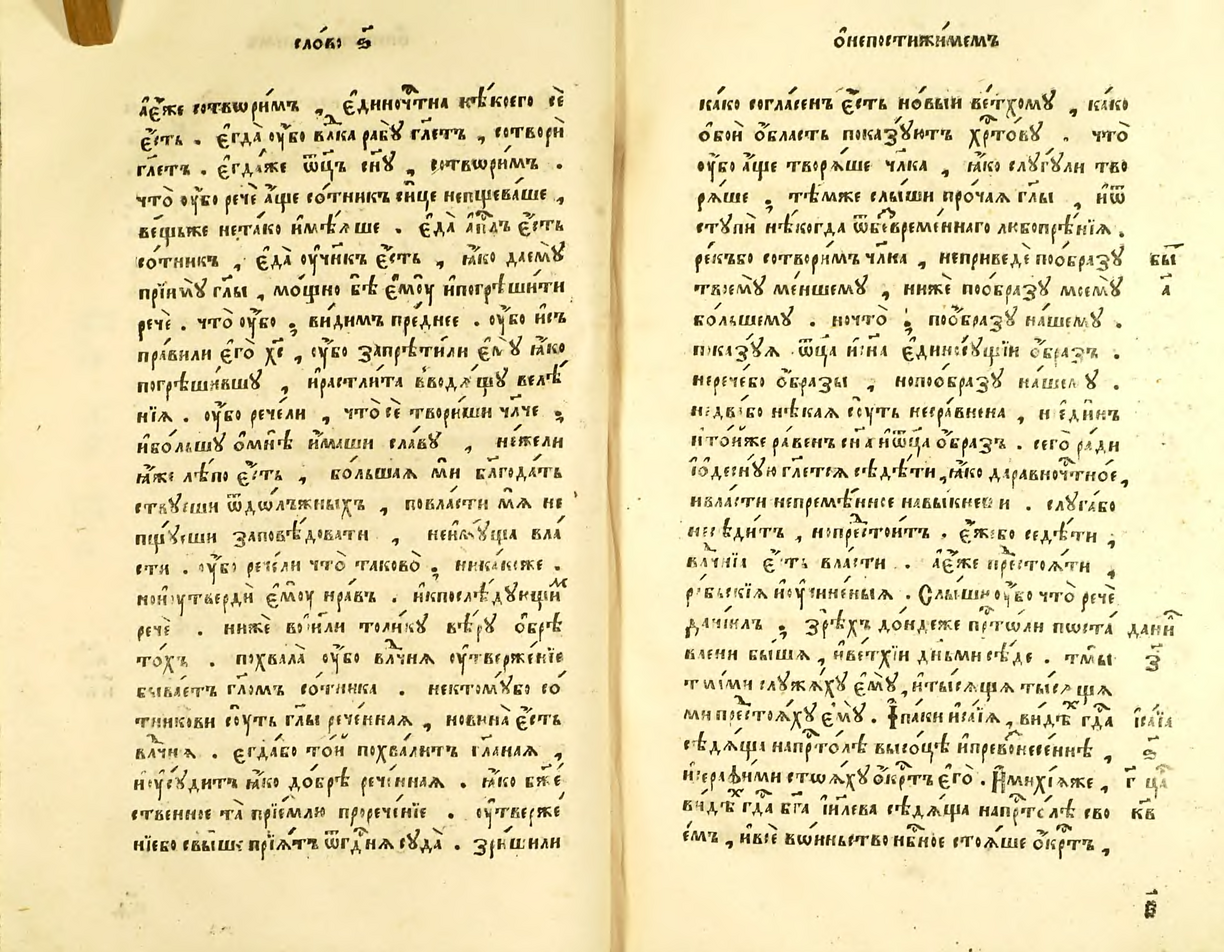 сло́во ѕ҃
а҆є҆́же сотвѡри́мъ , є҆диночⷭ҇тна нѣ́коего сѐ
є҆́сть . є҆гда̀ ѹ҆́бо влⷣка рабꙋ̀ гл҃етъ , сотворѝ
гл҃етъ . є҆гда́же ѿц҃ъ сн҃ꙋ , сотвѡри́мъ .
что̀ ѹ҆́бо речѐ а҆́ще со́тникъ си́це непщева́ше ,
ве́щьже нета́ко и҆мѣ́ѧше . є҆да̀ а҆пⷭ҇лъ є҆́сть
со́тникъ , є҆да̀ ѹ҆чн҃къ є҆́сть , ꙗ҆́ко дае́мꙋ
прїимꙋ̀ гл҃ы , мо́щно бѣ̀ є҆мꙋ̀ и҆погрѣши́ти
речѐ . что̀ ѹ҆́бо ; ви́димъ пре́днее . ѹ҆́бо и҆съ
пра́вили є҆го̀ хⷭ҇ , ѹ҆́бо запрѣти́ли є҆мꙋ̀ ꙗ҆́ко
погрѣши́вшꙋ , и҆растли́та вводѧ́щꙋ велѣ́
нїѧ . ѹ҆́бо рече́ли , что̀ сѐ твори́ши чл҃че ;
и҆бо́льшꙋ ѡ҆мнѣ̀ и҆́маши сла́вꙋ , не́жели
ꙗ҆́же лѣ́по є҆́сть , бо́льшаѧ мѝ благода́ть
ствꙋеши ѿдѡлъжныхъ , повла́сти мѧ̀ не
пщꙋ́еши заповѣ́довати , неи҆мꙋ́ща вла́
сти . ѹ҆́бо рече́ли что̀ таково̀ ; ника́коже .
но и҆утвердѝ є҆мꙋ̀ нра́въ . и҆кпослѣ́дꙋющимъ
речѐ . нижѐ во і҆и҃ли толи́кꙋ вѣ́рꙋ ѡ҆брѣ
то́хъ . похвала̀ ѹ҆́бо влⷣчнѧ ѹ҆твержє́нїе
быва́етъ гл҃омъ со́тника . нектомꙋ́бо со́
тникови сꙋ́ть гл҃ы рече́ннаѧ , новина̀ є҆́сть
влⷣчнѧ . є҆гда́бо то́й похва́литъ гл҃анаѧ ,
и҆ѹсꙋ́дитъ ꙗ҆́ко добрѣ̀ рече́ннаѧ . ꙗ҆́ко бж҃е
ственное та̀ прїе́млю прорече́нїе . ѹ҆тверже́
нїебо свы́ше прїѧ́тъ ѿгдⷭ҇нѧ сꙋда̀ . зри́шили
ѡ҆непостижи́мемъ
ка́ко согла́сенъ є҆́сть но́выи ве́тхомꙋ , ка́ко
ѻ҆боѝ ѻ҆́бласть пока́зꙋютъ хрⷭ҇то́вꙋ . что̀
ѹ҆́бо а҆́ще творѧ́ше чл҃ка , ꙗ҆́ко слꙋгꙋ́ли тво
рѧ́ше ; тѣ́мже слы́ши про́чаѧ гл҃ы , и҆ѿ
стꙋпѝ нѣ́когда ѿбезвре́меннаго любопрѣ́нїѧ .
ре́къбо сотвори́мъ чл҃ка , неприведѐ поо́бразꙋ
твоемꙋ̀ ме́ншемꙋ , нижѐ поо́бразꙋ моемꙋ̀
бо́льшемꙋ . ночто̀ ; поо́бразꙋ на́шемꙋ .
пока́зꙋѧ ѿц҃а и҆сн҃а є҆диносꙋ́щїи ѻ҆́бразъ .
нерече́бо ѻ҆́бразы , нопоо́бразꙋ на́шемꙋ .
недвѣ́бо нѣ́каѧ сꙋ́ть несра́внена , но є҆ди́нъ
и҆то́йже ра́венъ сн҃а и҆ѿц҃а ѻ҆́бразъ . сего̀ ра́ди
ѻ҆деснꙋ́ю гл҃етсѧ сѣдѣ́ти , ꙗ҆́ко да равночⷭ҇тное ,
и҆вла́сти непремѣ́нное навы́кнеши . слꙋга́бо
несѣди́тъ , нопрⷣестои́тъ . є҆́жебо седѣ́ти ,
влⷣчнїа є҆́сть вла́сти . а҆є҆́же прⷣестоѧ́ти ,
ра́бьскїѧ и҆ѹчине́ныѧ . Слы́ши ѹ҆́бо что̀ речѐ
данїи́лъ ; зрѣ́хъ до́ндеже прⷭ҇то́ли поста́
влени бы́шѧ , и҆ве́тхїи дньмѝ сѣ́де . тмы̀
тма́ми слꙋжа́хꙋ є҆мꙋ̀ , и҆ты́сѧща ты́сѧща
ми прⷣестоѧ́хꙋ є҆мꙋ̀ . І҆ па́ки и҆са́їѧ , ви́дѣхъ гдⷭ҇а
сѣдѧ́ща напрⷭ҇то́лѣ высо́цѣ и҆превознесе́ннѣ ,
и҆серафи́ми стоѧ́хꙋ ѻ҆́крⷭ҇тъ є҆гѡ̀ . И҆михі́ѧже ,
ви́дѣхъ гдⷭ҇а бг҃а і҆и҃лева сѣдѧ́ща напрⷭ҇то́лѣ сво
е́мъ , и҆всѐ во́иньство нбⷭ҇ное стоѧ́ше ѻ҆́крⷭ҇тъ ,
бы҃т
а҃
дани҃
з҃
і҆са́їа
ѕ҃
г҃ цⷭ҇а
кв҃